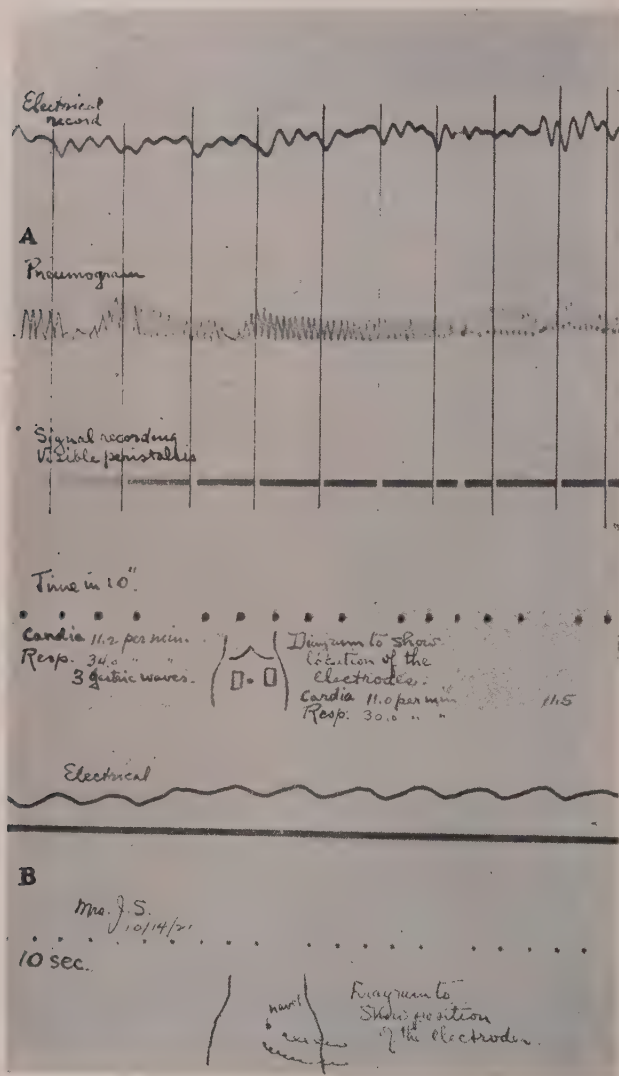 Electrical
record
A
Pneumogram
Signal recording
Visible peristalsis
Time in 10".
Cardia 11.2 per min.
Resp. 34.0 " "
3 gastric waves.
Diagram to show
location of the
electrodes.
Cardia 11.0 per min
Resp. 30.0 " "
11.5
Electrical
B
Mrs. J. S.
10/14/21
10 sec.
navel
Diagram to
Show position
of the electrodes.